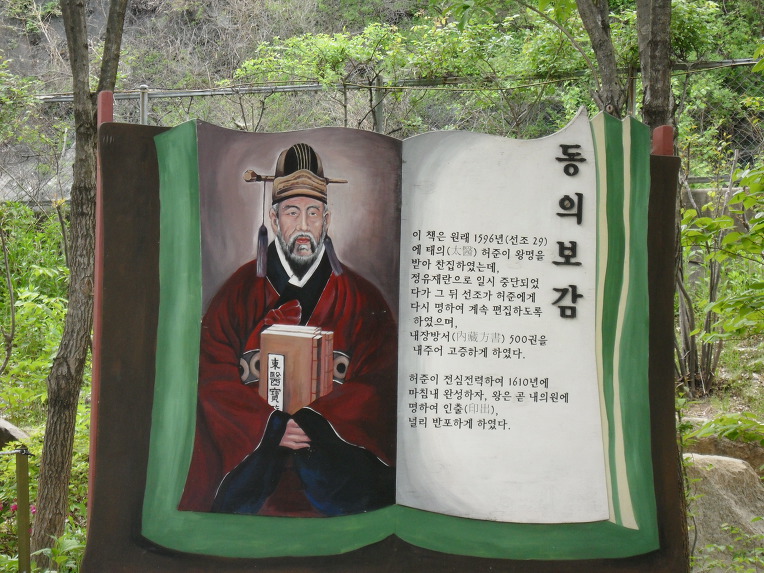 동의보감
이 책은 원래 1596년(선조 29)
에 태의(太醫) 허준이 왕명을
받아 찬집하였는데,
정유재란으로 일시 중단되었
다가 그 뒤 선조가 허준에게
다시 명하여 계속 편집하도록
하였으며,
내장방서(內藏方書) 500권을
내주어 고증하게 하였다.
허준이 전심전력하여 1610년에
마침내 완성하자, 왕은 곧 내의원에
명하여 인출(印出),
널리 반포하게 하였다.
東醫寶